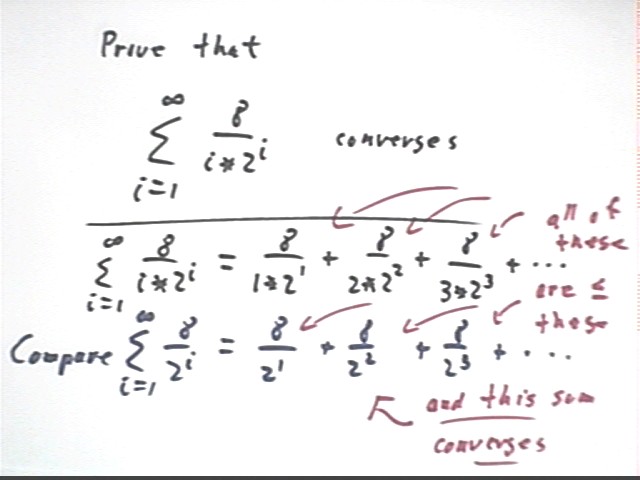 Prove that
∞ Σ i=1 8 / i*2^i converges
∞ Σ i=1 8 / i*2^i = 8 / 1*2^1 + 8 / 2*2^2 + 8 / 3*2^3 + ...
all of
these
are ≤
these
Compare ∞ Σ i=1 8 / 2^i = 8 / 2^1 + 8 / 2^2 + 8 / 2^3 + ...
and this sum
converges